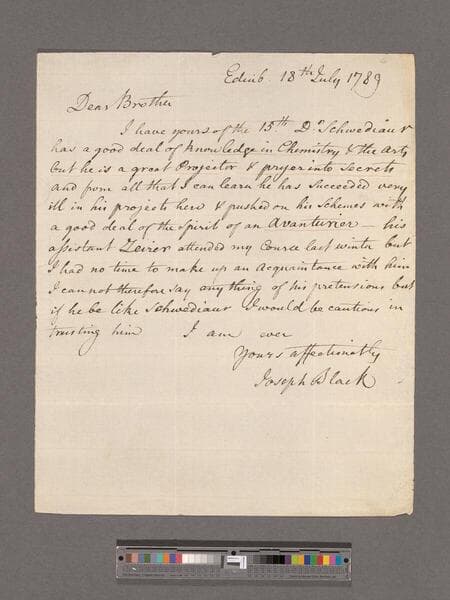 Edinb. 18th July 1789
Dear Brother
I have yours of the 15th Dr Schwediaur
has a good deal of knowledge in Chemistry & the Arts
but he is a great Projector & pryer into Secrets
and from all that I can learn he has Succeeded very
ill in his projects here & pushed on his Schemes with
a good deal of the Spirit of an Avanturier — his
assistant attended my Course last winter but
I had no time to make up an Acquaintance with him
I cannot therefore say anything of his pretensions but
if he be like Schwediaur I would be cautious in
trusting him I am ever
Yours affectionately
Joseph Black